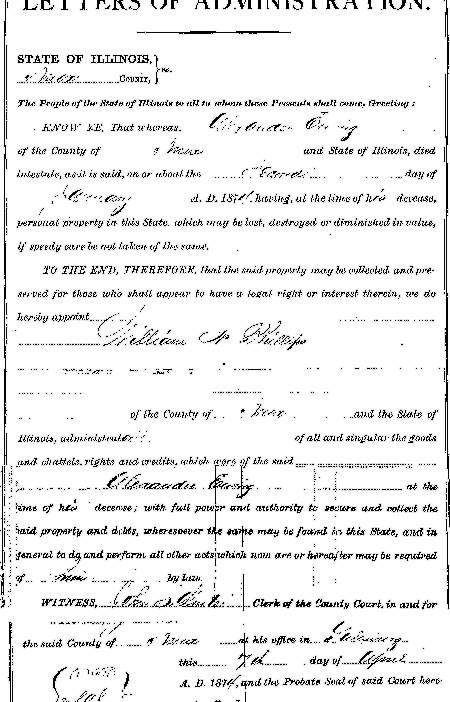 LETTERS OF ADMINISTRATION.
STATE OF ILLINOIS, } ss.
County,
The People of the State of Illinois to all to whom these Presents shall come, Greeting:
KNOW YE, That whereas, Ewing
of the County of and State of Illinois, died
intestate, as it is said, on or about the day of
January A. D. 187 having, at the time of his decease,
personal property in this State, which may be lost, destroyed or diminished in value,
if speedy care be not taken of the same.
TO THE END, THEREFORE, that the said property may be collected and pre-
served for those who shall appear to have a legal right or interest therein, we do
hereby appoint
William N Phillips
of the County of and the State of
Illinois, administrator of all and singular the goods
and chattels, rights and credits, which were of the said
Alexander Ewing at the
time of his decease; with full power and authority to secure and collect the
said property and debts, wheresoever the same may be found in this State, and in
general to do and perform all other acts which now are or hereafter may be required
of him by law.
WITNESS, Clerk of the County Court, in and for
the said County of at his office in
this 7th day of April
A. D. 187 and the Probate Seal of said Court here-